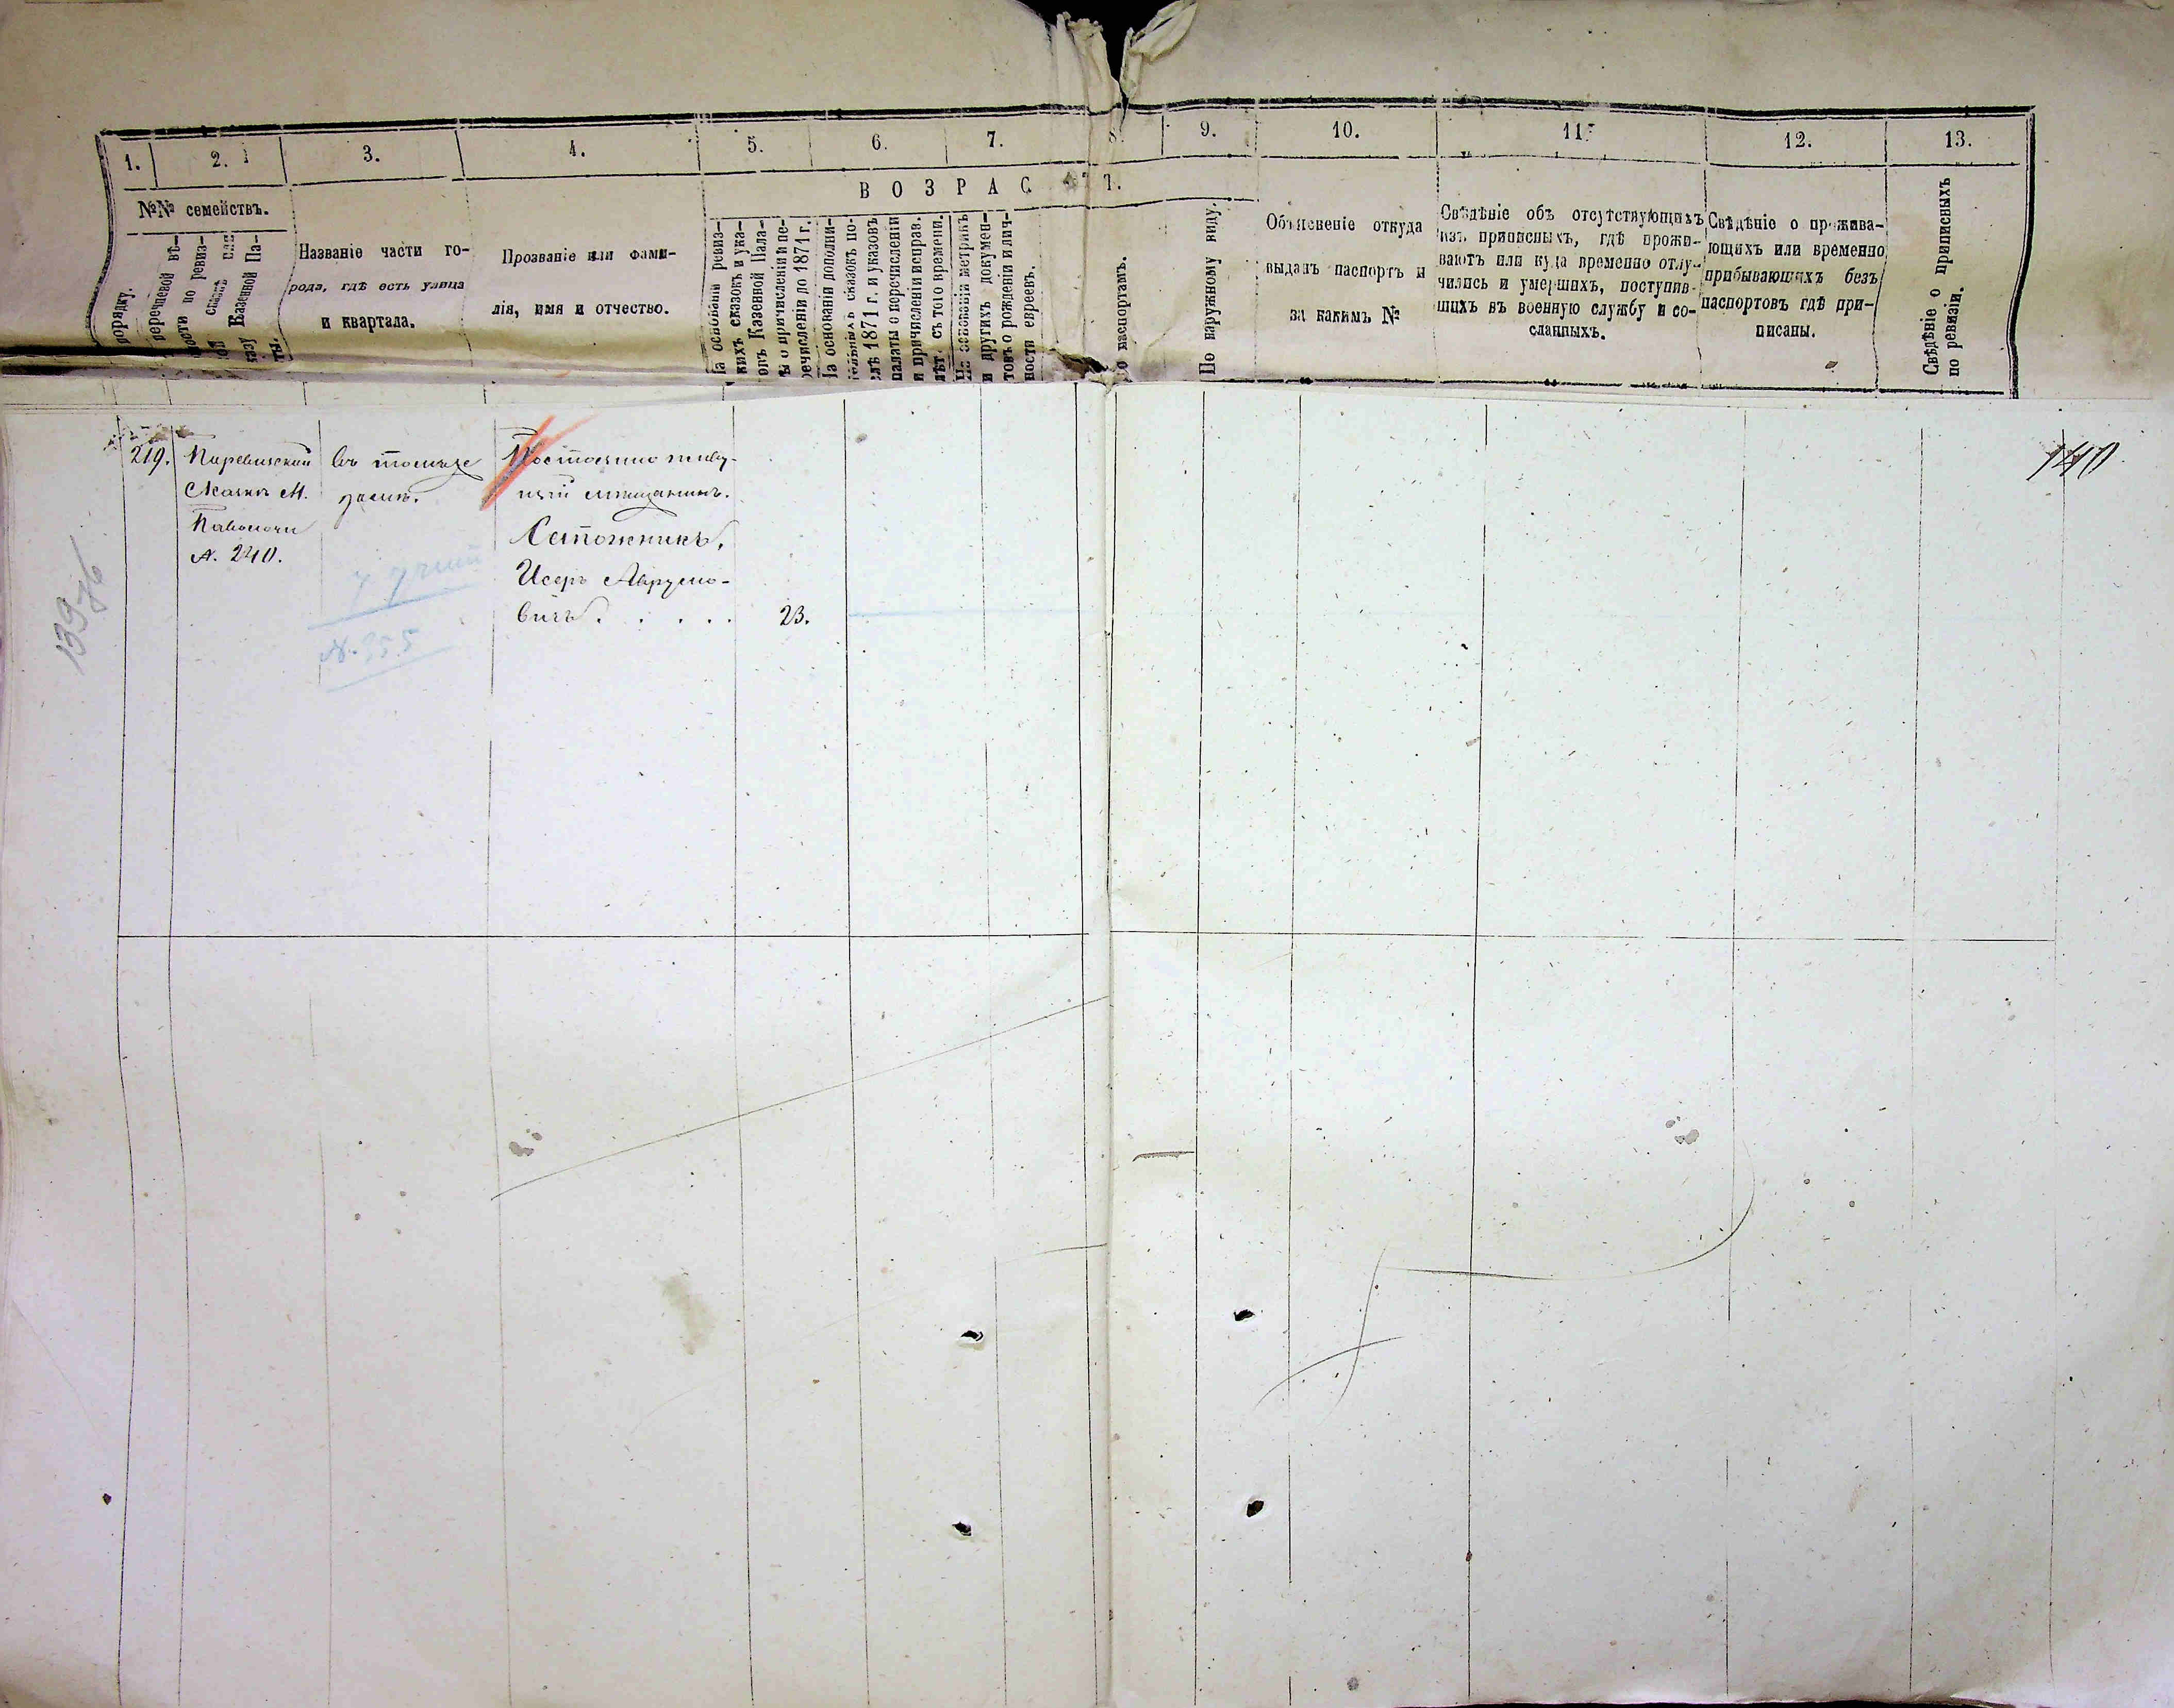 1. 2. 3. 4. 5. 6. 7. 8. 9. 10. 11. 12. 13.
ВОЗРАСТ.
№№ семействъ.
порядку.
перечневой вѣ-
мости по ревиз-
ой сказкѣ или
казу Казенной Па-
ты.
Названіе части го-
рода, гдѣ есть улица
и квартала.
Прозваніе или фами-
лія, имя и отчество.
На основаніи ревиз-
кихъ сказокъ и ука-
овъ Казенной Пала-
ы о причисленіи и пе-
речисленіи до 1871 г.
На основаніи дополни-
тельныхъ сказокъ по-
слѣ 1871 г. и указовъ
палаты о перечисленіи
и причисленіи исправ.
лѣт. съ того времени.
На основаніи метрикъ
и другихъ докумен-
товъ о рожденіи и лич-
ности евреевъ.
По паспортамъ.
По наружному виду.
Объясненіе откуда
выданъ паспортъ и
за какимъ №
Свѣдѣніе объ отсутствующихъ
изъ приписныхъ, гдѣ прожи-
ваютъ или куда временно отлу-
чились и умершихъ, поступив-
шихъ въ военную службу и со-
сланныхъ.
Свѣдѣніе о прожива-
ющихъ или временно
прибывающихъ безъ
паспортовъ гдѣ при-
писаны.
Свѣдѣніе о приписныхъ
по ревизіи.
219.
сказкѣ М.
Паволочи
№. 240.
въ томъже
домѣ.
№. 355
Постоянно живу-
щій мѣщанинъ.
Сапожникъ,
Исеръ Аврумо-
вичъ . . . . .
23.
139
140